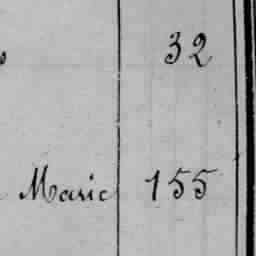 32
Marie 155